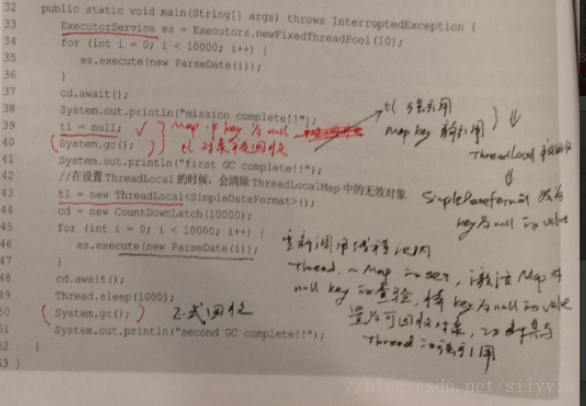 32 public static void main(String[] args) throws InterruptedException {
33 ExecutorService es = Executors.newFixedThreadPool(10);
34 for (int i = 0; i < 10000; i++) {
35 es.execute(new ParseDate(i));
36 }
37 cd.await();
38 System.out.println("mission complete!!");
39 tl = null; ✓ Map 中 key 为 null
40 System.gc(); tl 对象被回收
tl 强引用
Map key 弱引用
ThreadLocal
SimpleDateFormat 成为
key 为 null 的 value
41 System.out.println("first GC complete!!");
42 //在设置 ThreadLocal 的时候，会清除 ThreadLocalMap 中的无效对象
43 tl = new ThreadLocal<SimpleDateFormat>();
44 cd = new CountDownLatch(10000);
45 for (int i = 0; i < 10000; i++) {
46 es.execute(new ParseDate(i));
47 }
48 cd.await();
49 Thread.sleep(1000);
50 System.gc(); 正式回收
51 System.out.println("second GC complete!!");
52 }
53 }
重新调用线程池内
Thread. ~ Map 的 set，激活 Map 对
null key 的查验，将 key 为 null 的 value
置为可回收对象，
Thread 的强引用
http://blog.csdn.net/silyvin